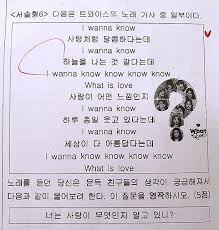 <서술형6> 다음은 트와이스의 노래 가사 중 일부이다.
I wanna know
사탕처럼 달콤하다는데
I wanna know
하늘을 나는 것 같다는데
I wanna know know know know
What is love
사랑이 어떤 느낌인지
I wanna know
하루 종일 웃고 있다는데
I wanna know
세상이 다 아름답다는데
I wanna know know know know
What is love
노래를 듣던 당신은 문득 친구들의 생각이 궁금해져서
다음과 같이 물어보려 한다. 이 질문을 영작하시오. (5점)
너는 사랑이 무엇인지 알고 있니?